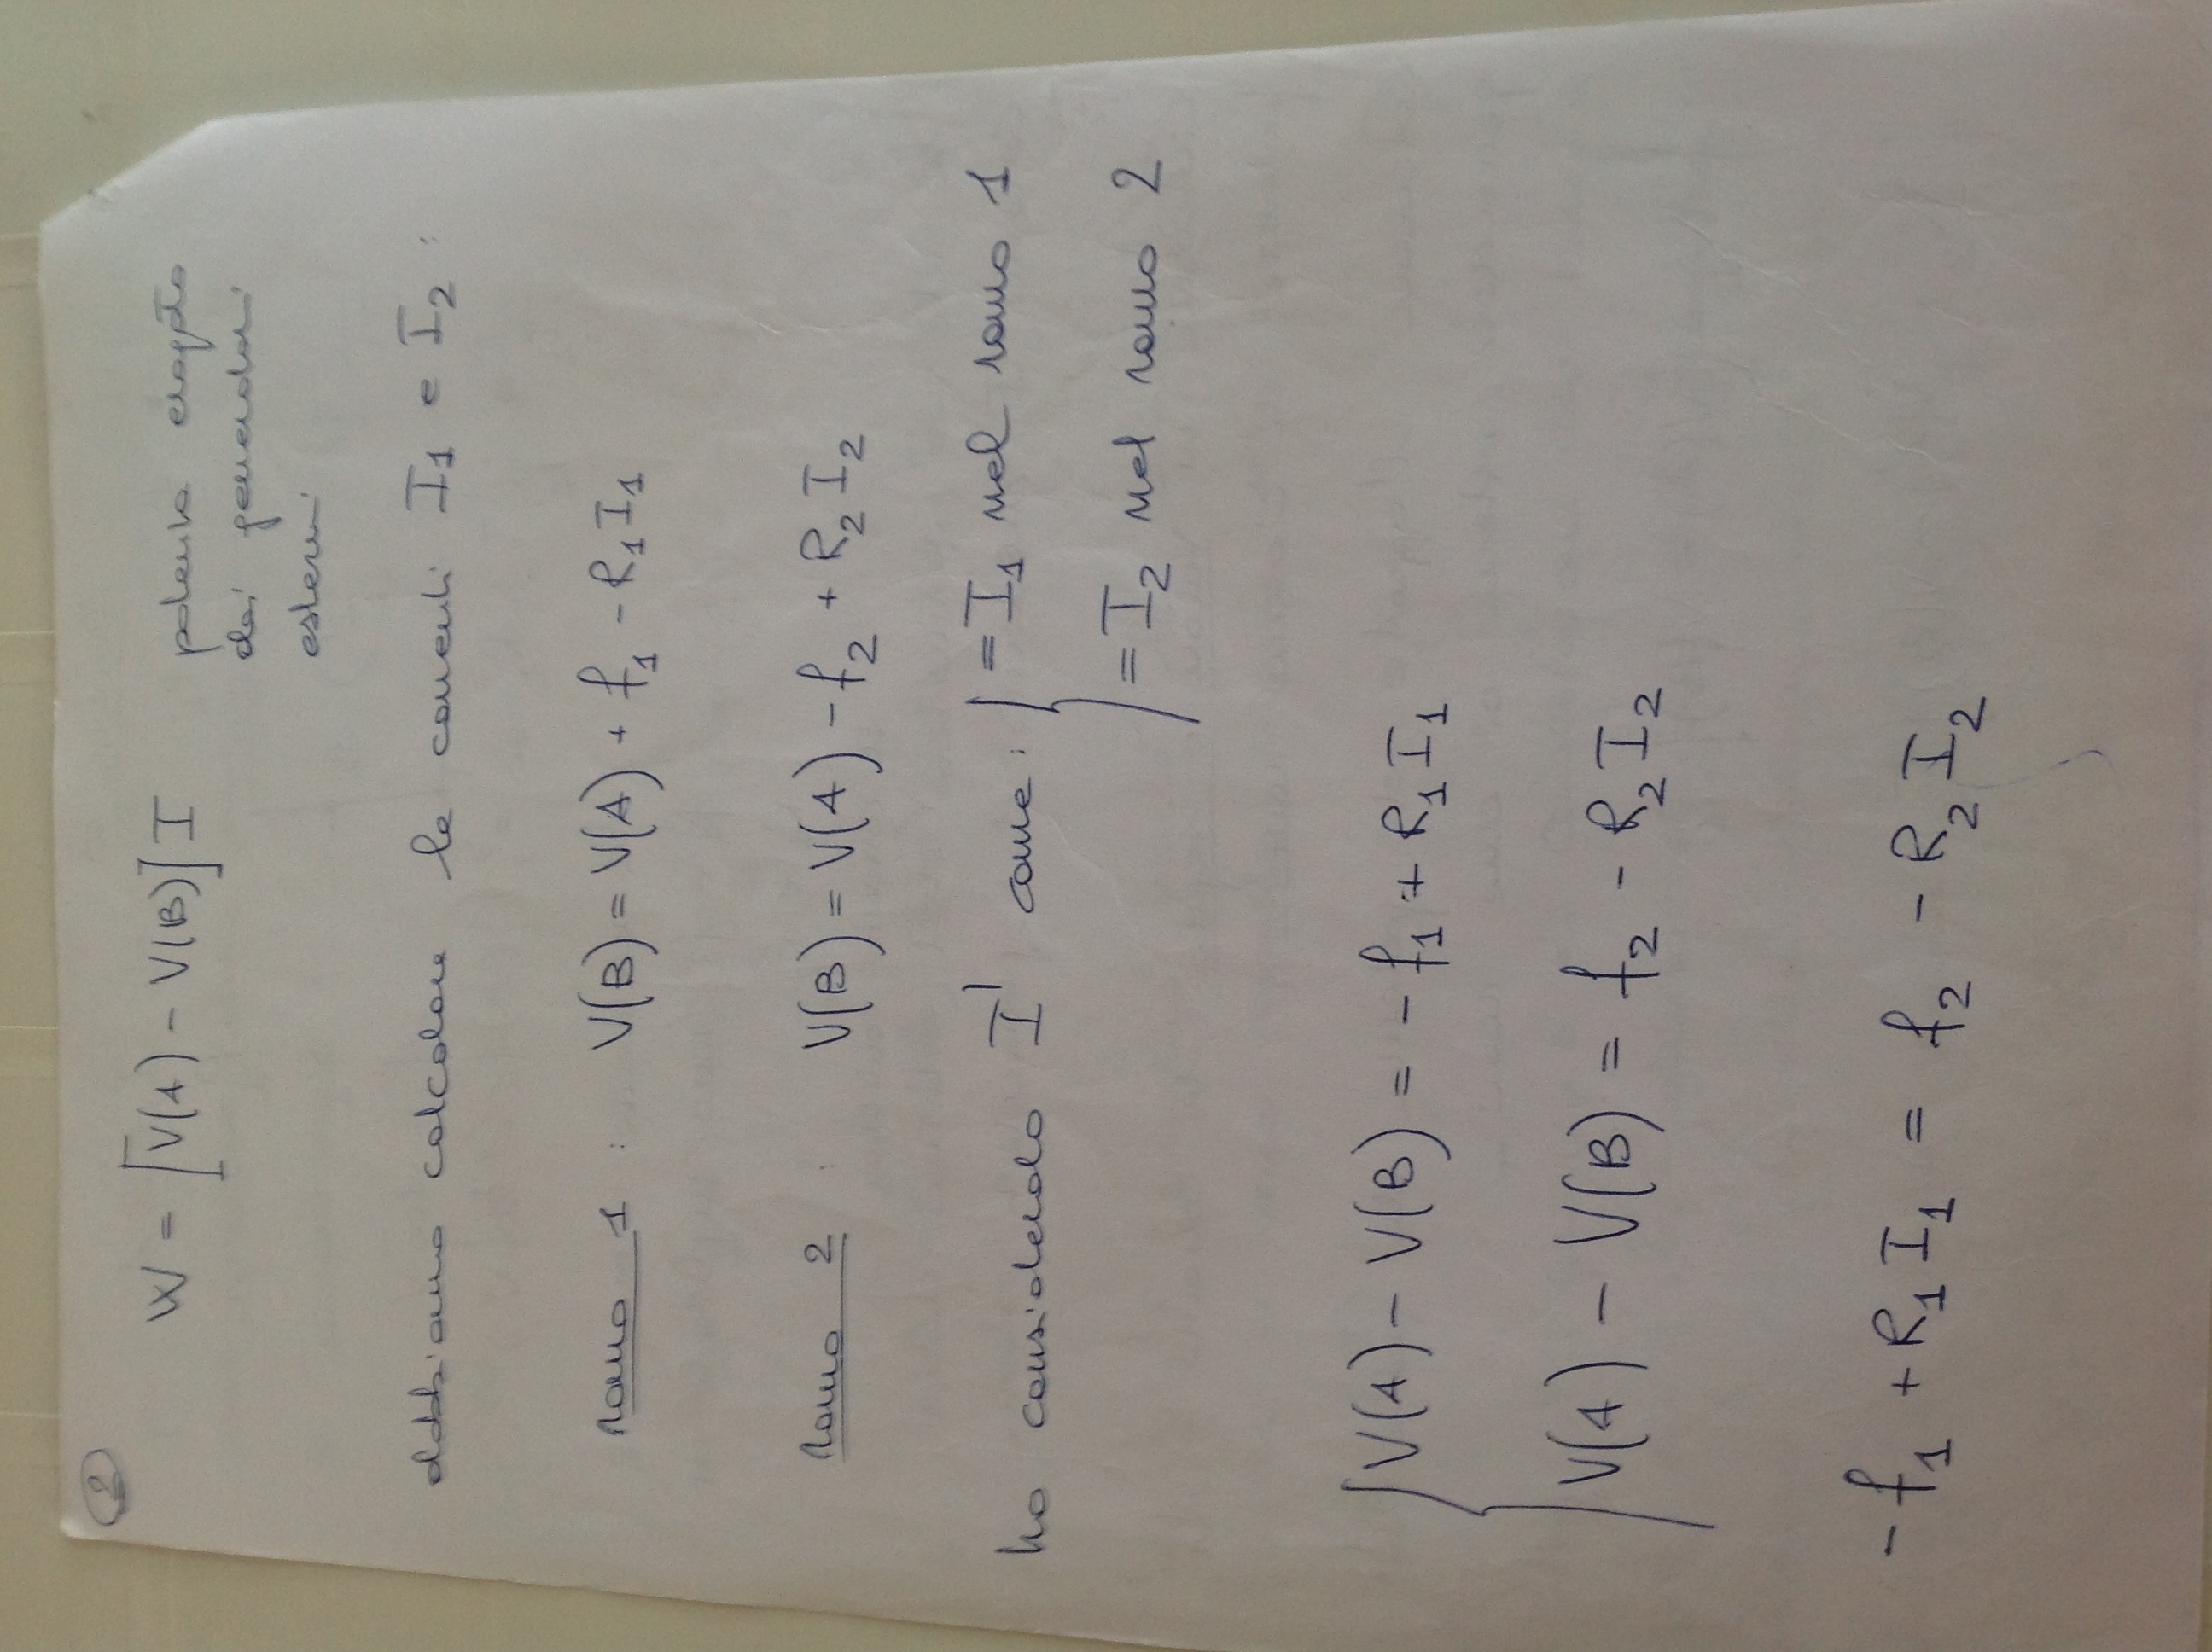 2
W = [V(A) - V(B)] I potenza erogata
dai generatori
esterni
dobbiamo calcolare le correnti I₁ e I₂ :
ramo 1 : V(B) = V(A) + f₁ - R₁ I₁
ramo 2 : V(B) = V(A) - f₂ + R₂ I₂
ho considerato I' come : { = I₁ nel ramo 1
= I₂ nel ramo 2
{ V(A) - V(B) = - f₁ + R₁ I₁
V(A) - V(B) = f₂ - R₂ I₂
- f₁ + R₁ I₁ = f₂ - R₂ I₂